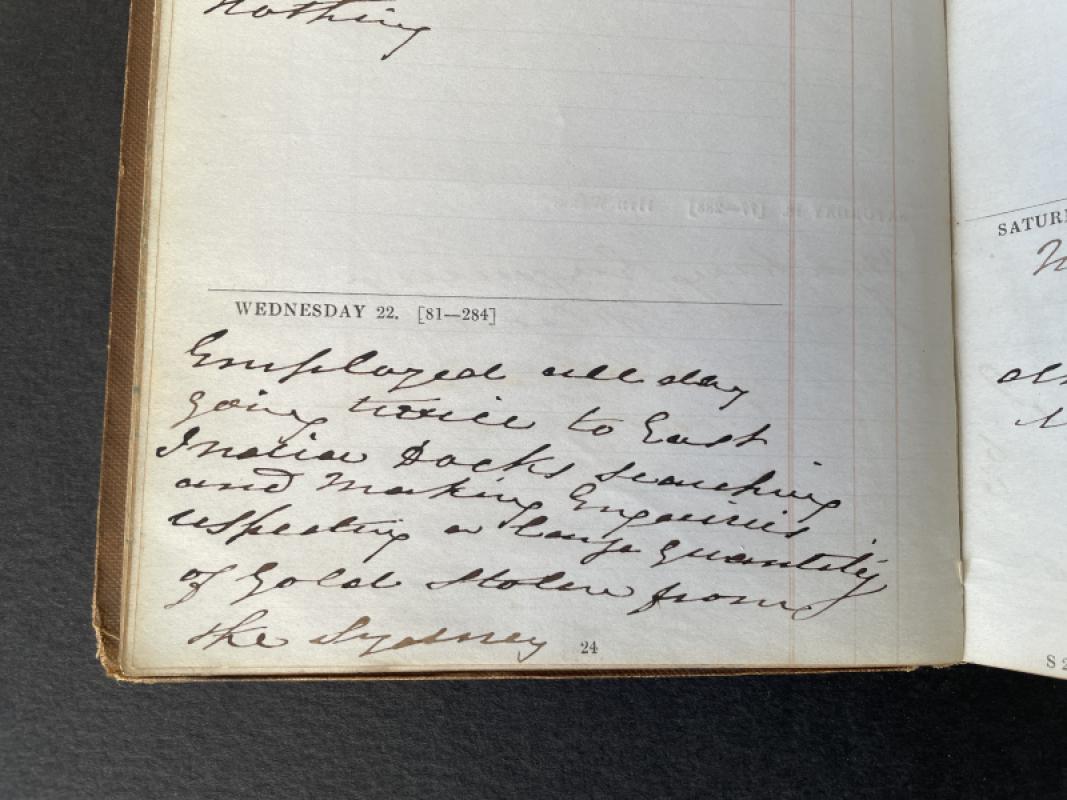 nothing
WEDNESDAY 22. [81—284]
Employed all day
going twice to East
India Docks searching
and Making Enquiries
respecting a large quantity
of Gold Stolen from
the Sydney
24
SATUR
S 2